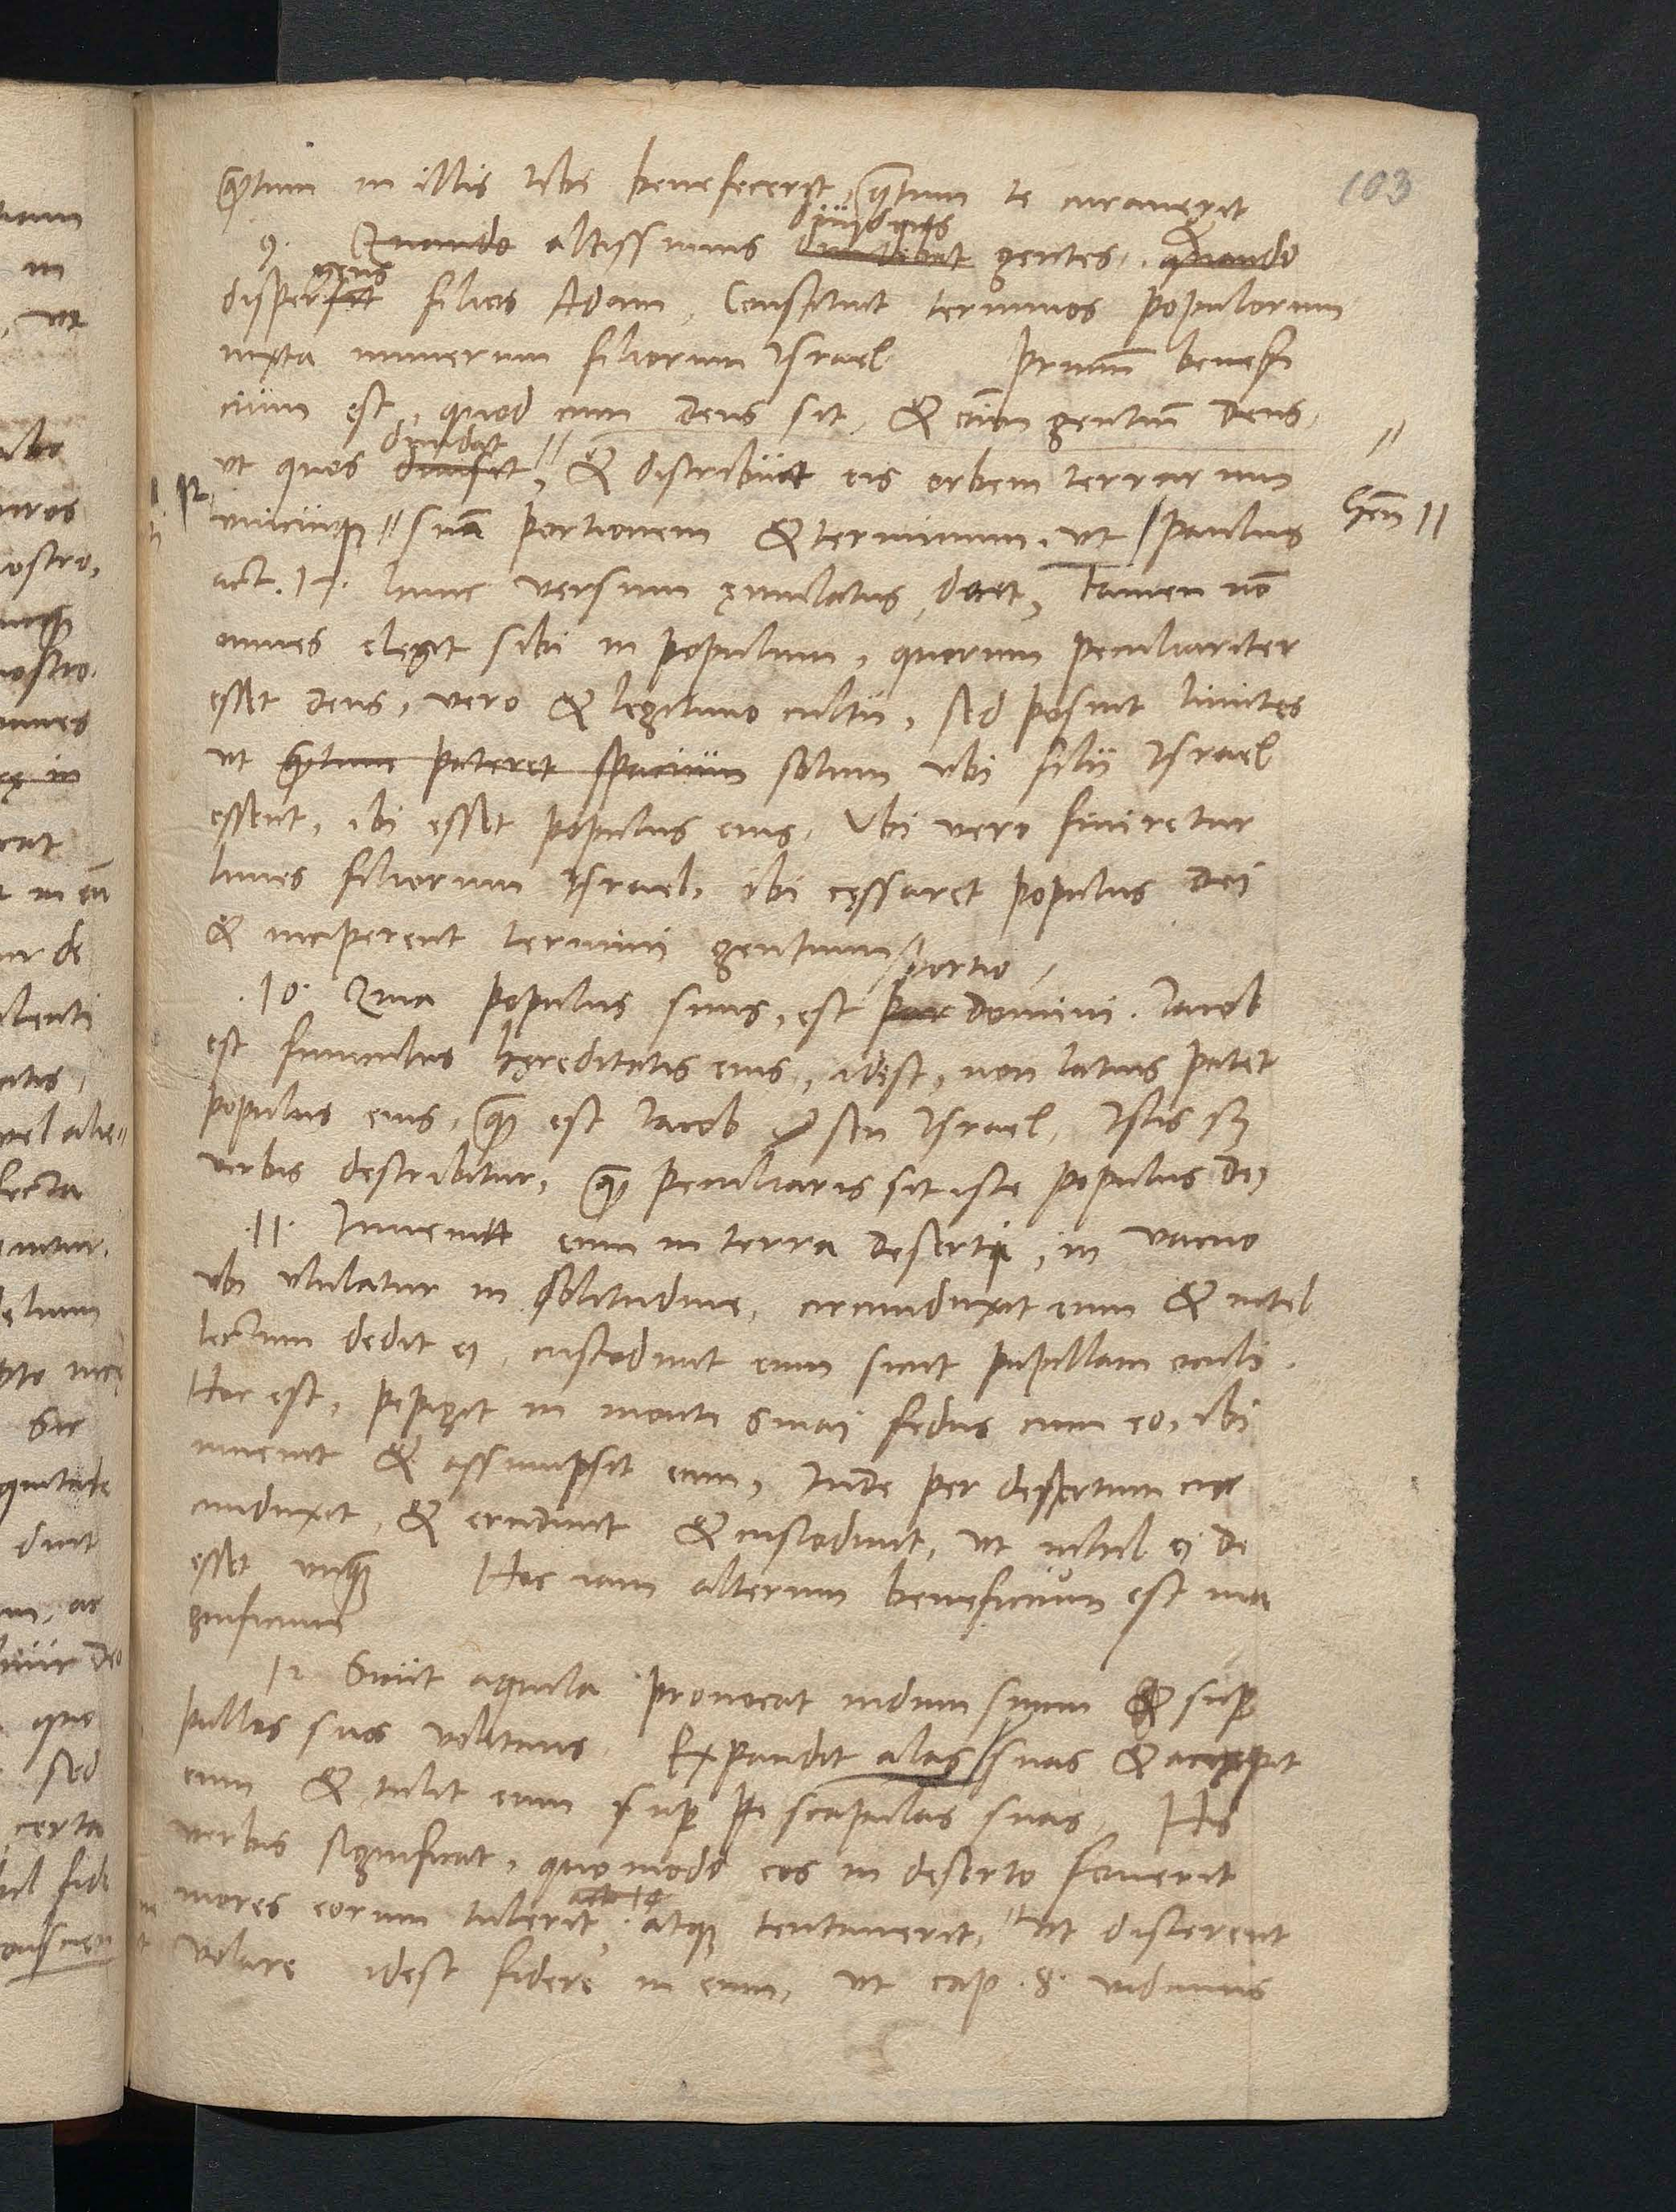 103
quantum in illis tibi benefecerit, quantum te curaverit
9. Quando altissimus diuidens diuidebat gentes. quando
dispergens filios Adam, Constituit terminos populorum
iuxta numerum filiorum Israel Primum benefi
cium est, quod cum deus sit, & etiam gentium deus,
ut quos diuidat diuisit, & distribuit eis orbem terrarum
Gen 11
unicuique suam portionem & terminum, ut Paulus
act. 17. hunc versum emulatus docet, tamen non
omnes elegit sibi in populum, quorum peculiariter
esset deus, vero & legitimo cultu, sed posuit limites
ut quantum pateret spacium solum ubi filii Israel
essent, ibi esset populus eius, Ubi vero finiretur
limes filiorum Israel, ibi cessaret populus dei
& inciperent termini gentium
10. Quia populus suus, est portio par domini. Iacob
est funiculus hereditatis eius, idest, non latius patet
populus eius, quam est Iacob seu Israel, Istis
verbis describitur, quam peculiaris sit iste populus dei
11. Inuenit eum in terra deserta, in vacuo
ubi ululatur in solitudine, circumduxit eum & intel
lectum dedit ei, custodiuit eum sicut pupillam oculi.
Hoc est, pepigit in monti Sinai fedus cum eo, ibi
inuenit & assumpsit eum, Inde per desertum cir
cumduxit, & erudiuit & custodiuit, ut nihil ei de
esset unquam Hoc iam alterum beneficium est ma
gnificum
12 Sicut aquila prouocat nidum suum & super
pullos suos volitans. Expandit alas suas & accepit
eum & tulit eum super scapulas suas, His
verbis significat, quomodo eos in deserto fouerit
mores eorum tulerit, atque tentauerit, ut discerent
volare idest fidere in eum, ut cap. 8. vidimus